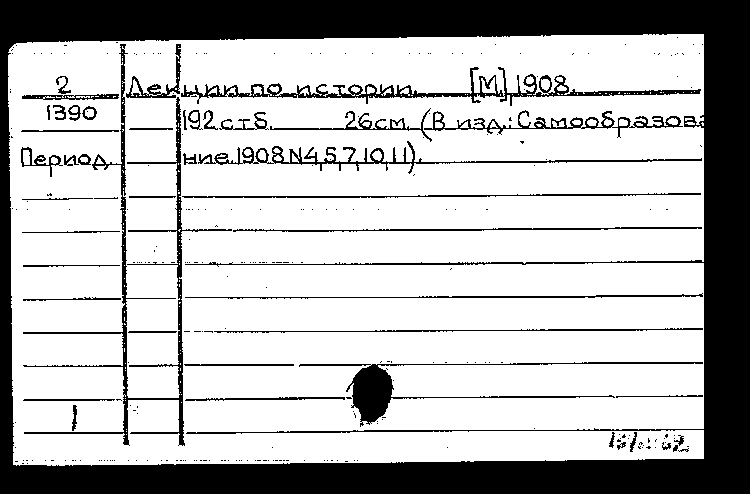 2 Лекции по истории. [М], 1908.
1390 192 стб. 26 см. (В изд.: Самообразова
Период. ние. 1908 N4,5,7,10,11).
1